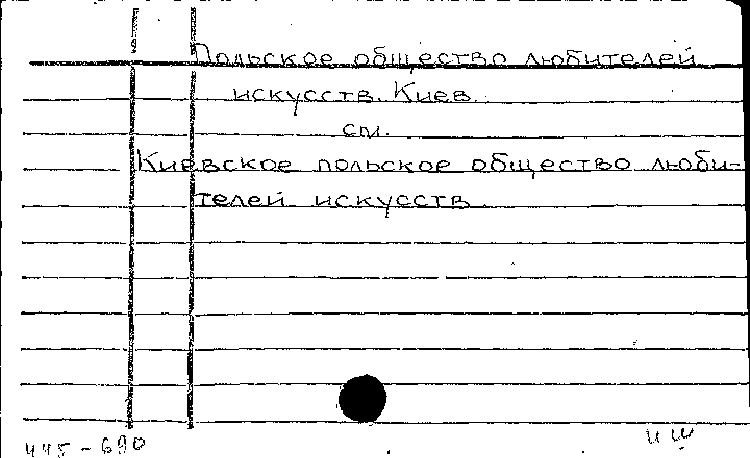 Польское общество любителей
искусств. Киев.
см.
Киевское польское общество люби-
телей искусств
445-690